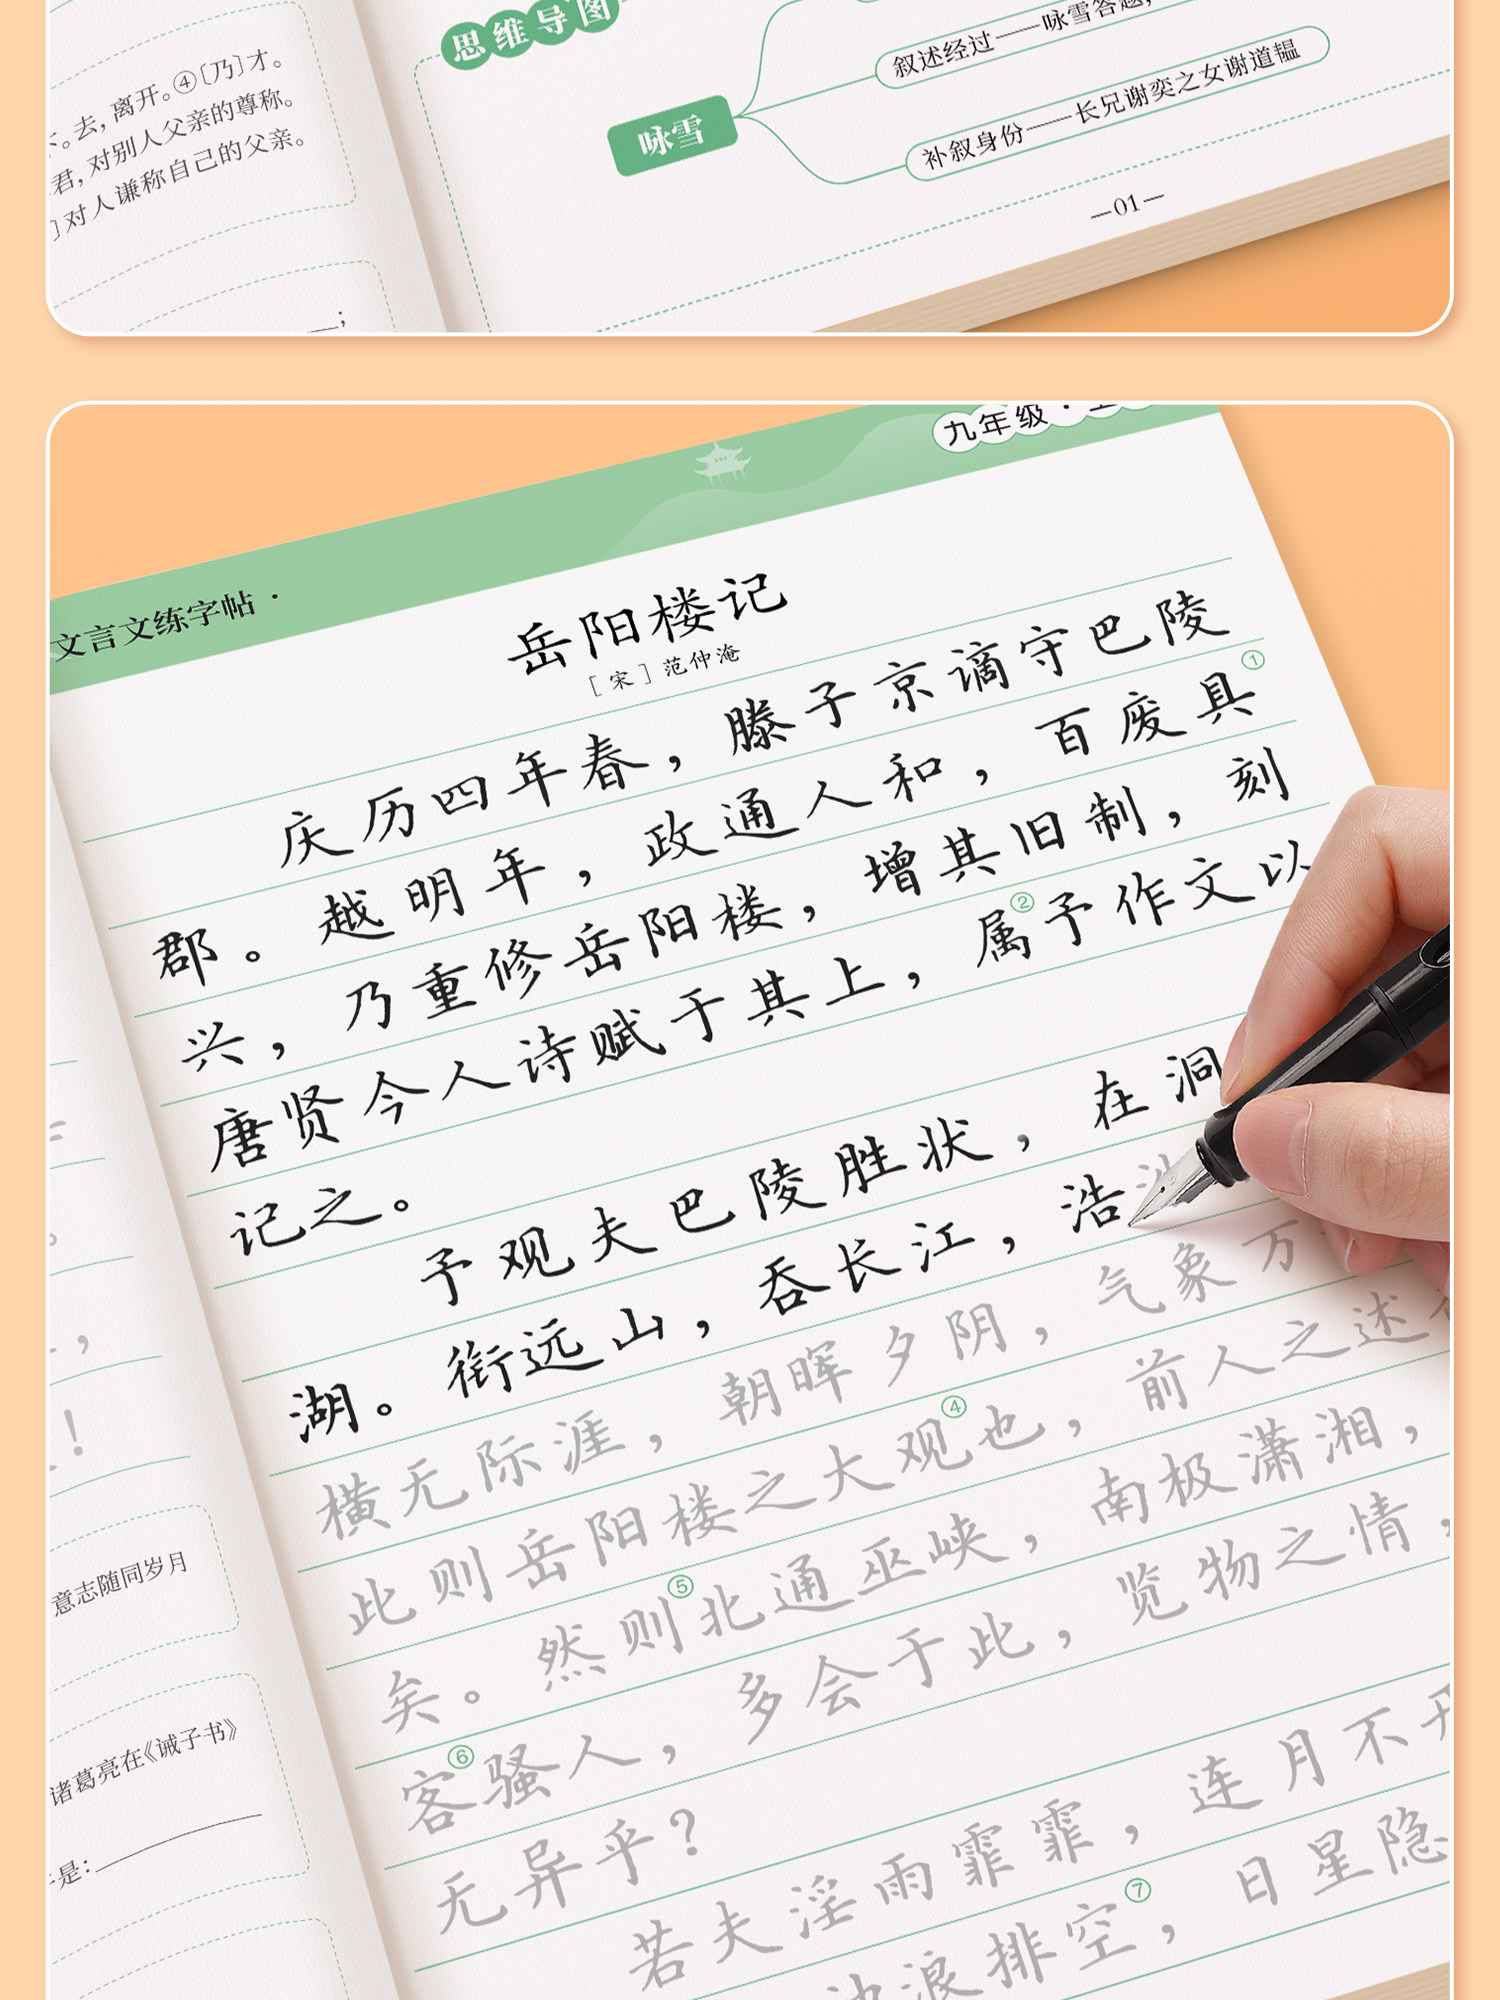 去，离开。④〔乃〕才。
君，对别人父亲的尊称。
〕对人谦称自己的父亲。
；
思维导图
咏雪
叙述经过——咏雪答题，
补叙身份——长兄谢奕之女谢道韫
—01—
九年级·
文言文练字帖·
岳阳楼记
［宋］范仲淹
庆历四年春，滕子京谪守巴陵
郡。越明年，政通人和，百废具①
兴，乃重修岳阳楼，增其旧制，刻
唐贤今人诗赋于其上，属②予作文以
记之。
予观夫巴陵胜状，在洞
湖。衔远山，吞长江，浩
横无际涯，朝晖夕阴，气象万
此则岳阳楼之大观④也，前人之述
矣。然则⑤北通巫峡，南极潇湘，
客⑥骚人，多会于此，览物之情，
无异乎？
若夫淫雨霏霏，连月不开
浪排空⑦，日星隐
，
！
意志随同岁月
诸葛亮在《诫子书》
是：